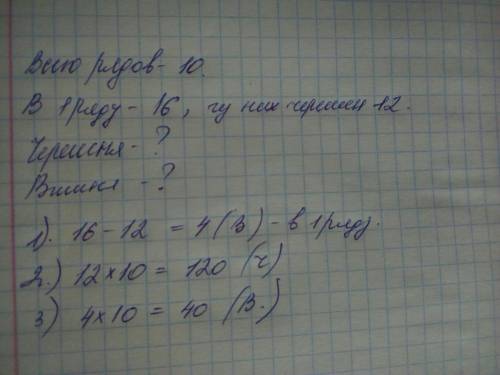 Всего рядов - 10.
В 1 ряду - 16, из них черешен 12.
Черешня - ?
Вишня - ?
1). 16 - 12 = 4 (В) - в 1 ряд).
2.) 12 × 10 = 120 (ч)
3) 4 × 10 = 40 (В.)